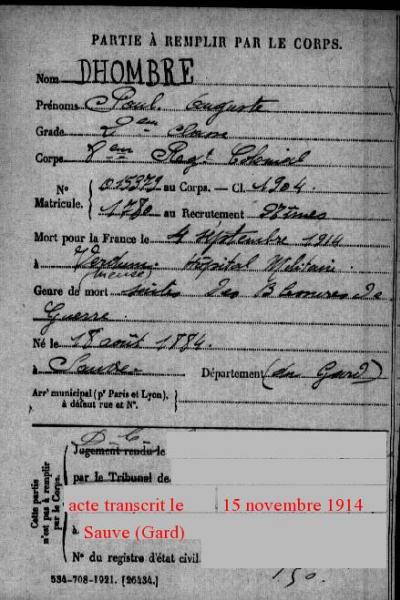 PARTIE À REMPLIR PAR LE CORPS.
Nom DHOMBRE
Prénoms Paul Auguste
Grade 2em classe
Corps 8eme Regt Colonial
N° Matricule. 015379 au Corps. — Cl. 1904.
1780 au Recrutement Nîmes
Mort pour la France le 4 septembre 1914
à Verdun Hôpital Militaire
(Meuse)
Genre de mort suites des Blessures de
Guerre
Né le 18 août 1884.
à Sauve Département (du Gard)
Arr' municipal (p' Paris et Lyon),
à défaut rue et N°.
Cette partie n'est pas à remplir par le Corps.
D C
Jugement rendu le
par le Tribunal de
acte transcrit le 15 novembre 1914
à Sauve (Gard)
N° du registre d'état civil
150.
534-708-1921. [26434.]